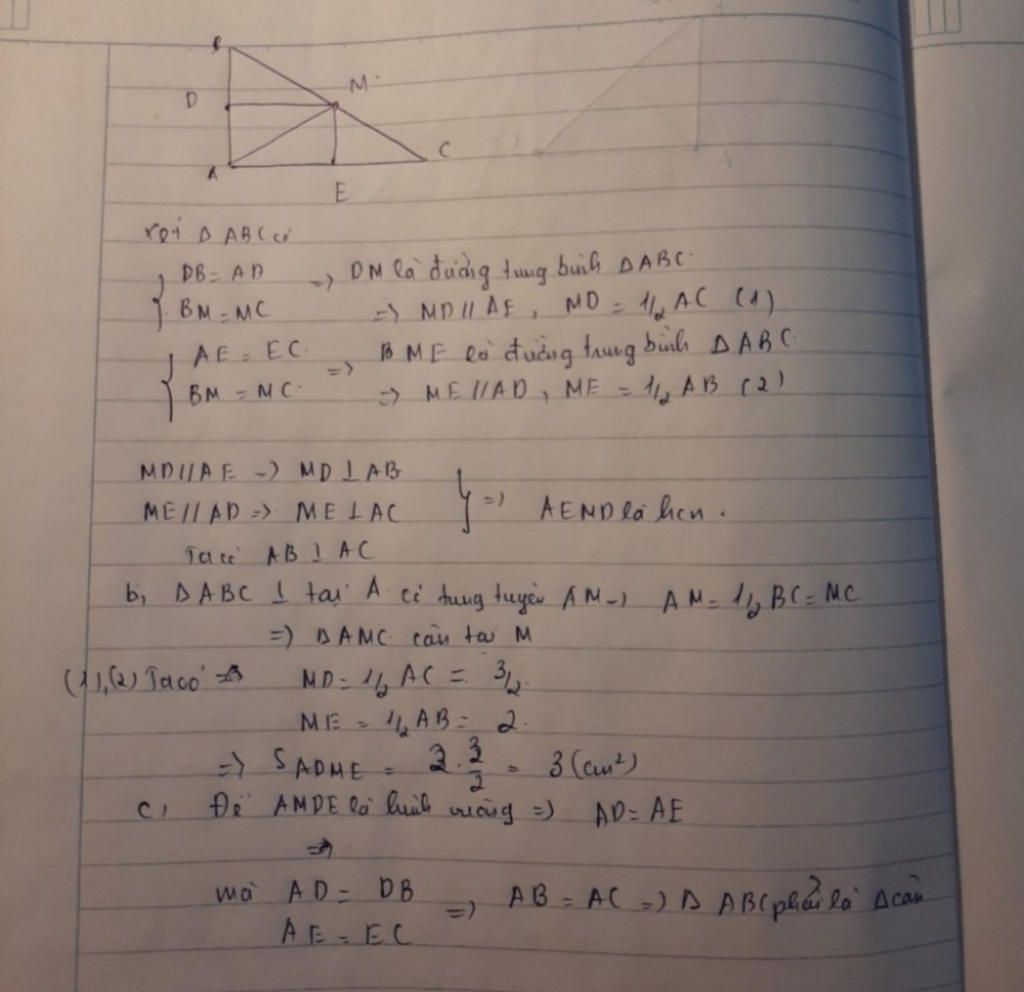 B
D
M
A
C
E
xét Δ ABC có
DB = AD => DM là đường trung bình ΔABC.
BM = MC => MD // AE, MD = 1/2 AC (1)
AE = EC => ME là đường trung bình ΔABC
BM = MC. => ME // AD, ME = 1/2 AB (2)
MD // AE -> MD ⊥ AB
ME // AD => ME ⊥ AC => AEMD là hcn.
Ta có AB ⊥ AC
b, ΔABC ⊥ tại A có trung tuyến AM -> AM = 1/2 BC = MC
=> ΔAMC cân tại M
(1), (2) Ta có => MD = 1/2 AC = 3/2.
ME = 1/2 AB = 2.
=> S ADME = 2 . 3/2 = 3 (cm²)
c, Để AMDE là hình vuông => AD = AE
=>
mà AD = DB => AB = AC => Δ ABC phải là Δ cân
AE = EC